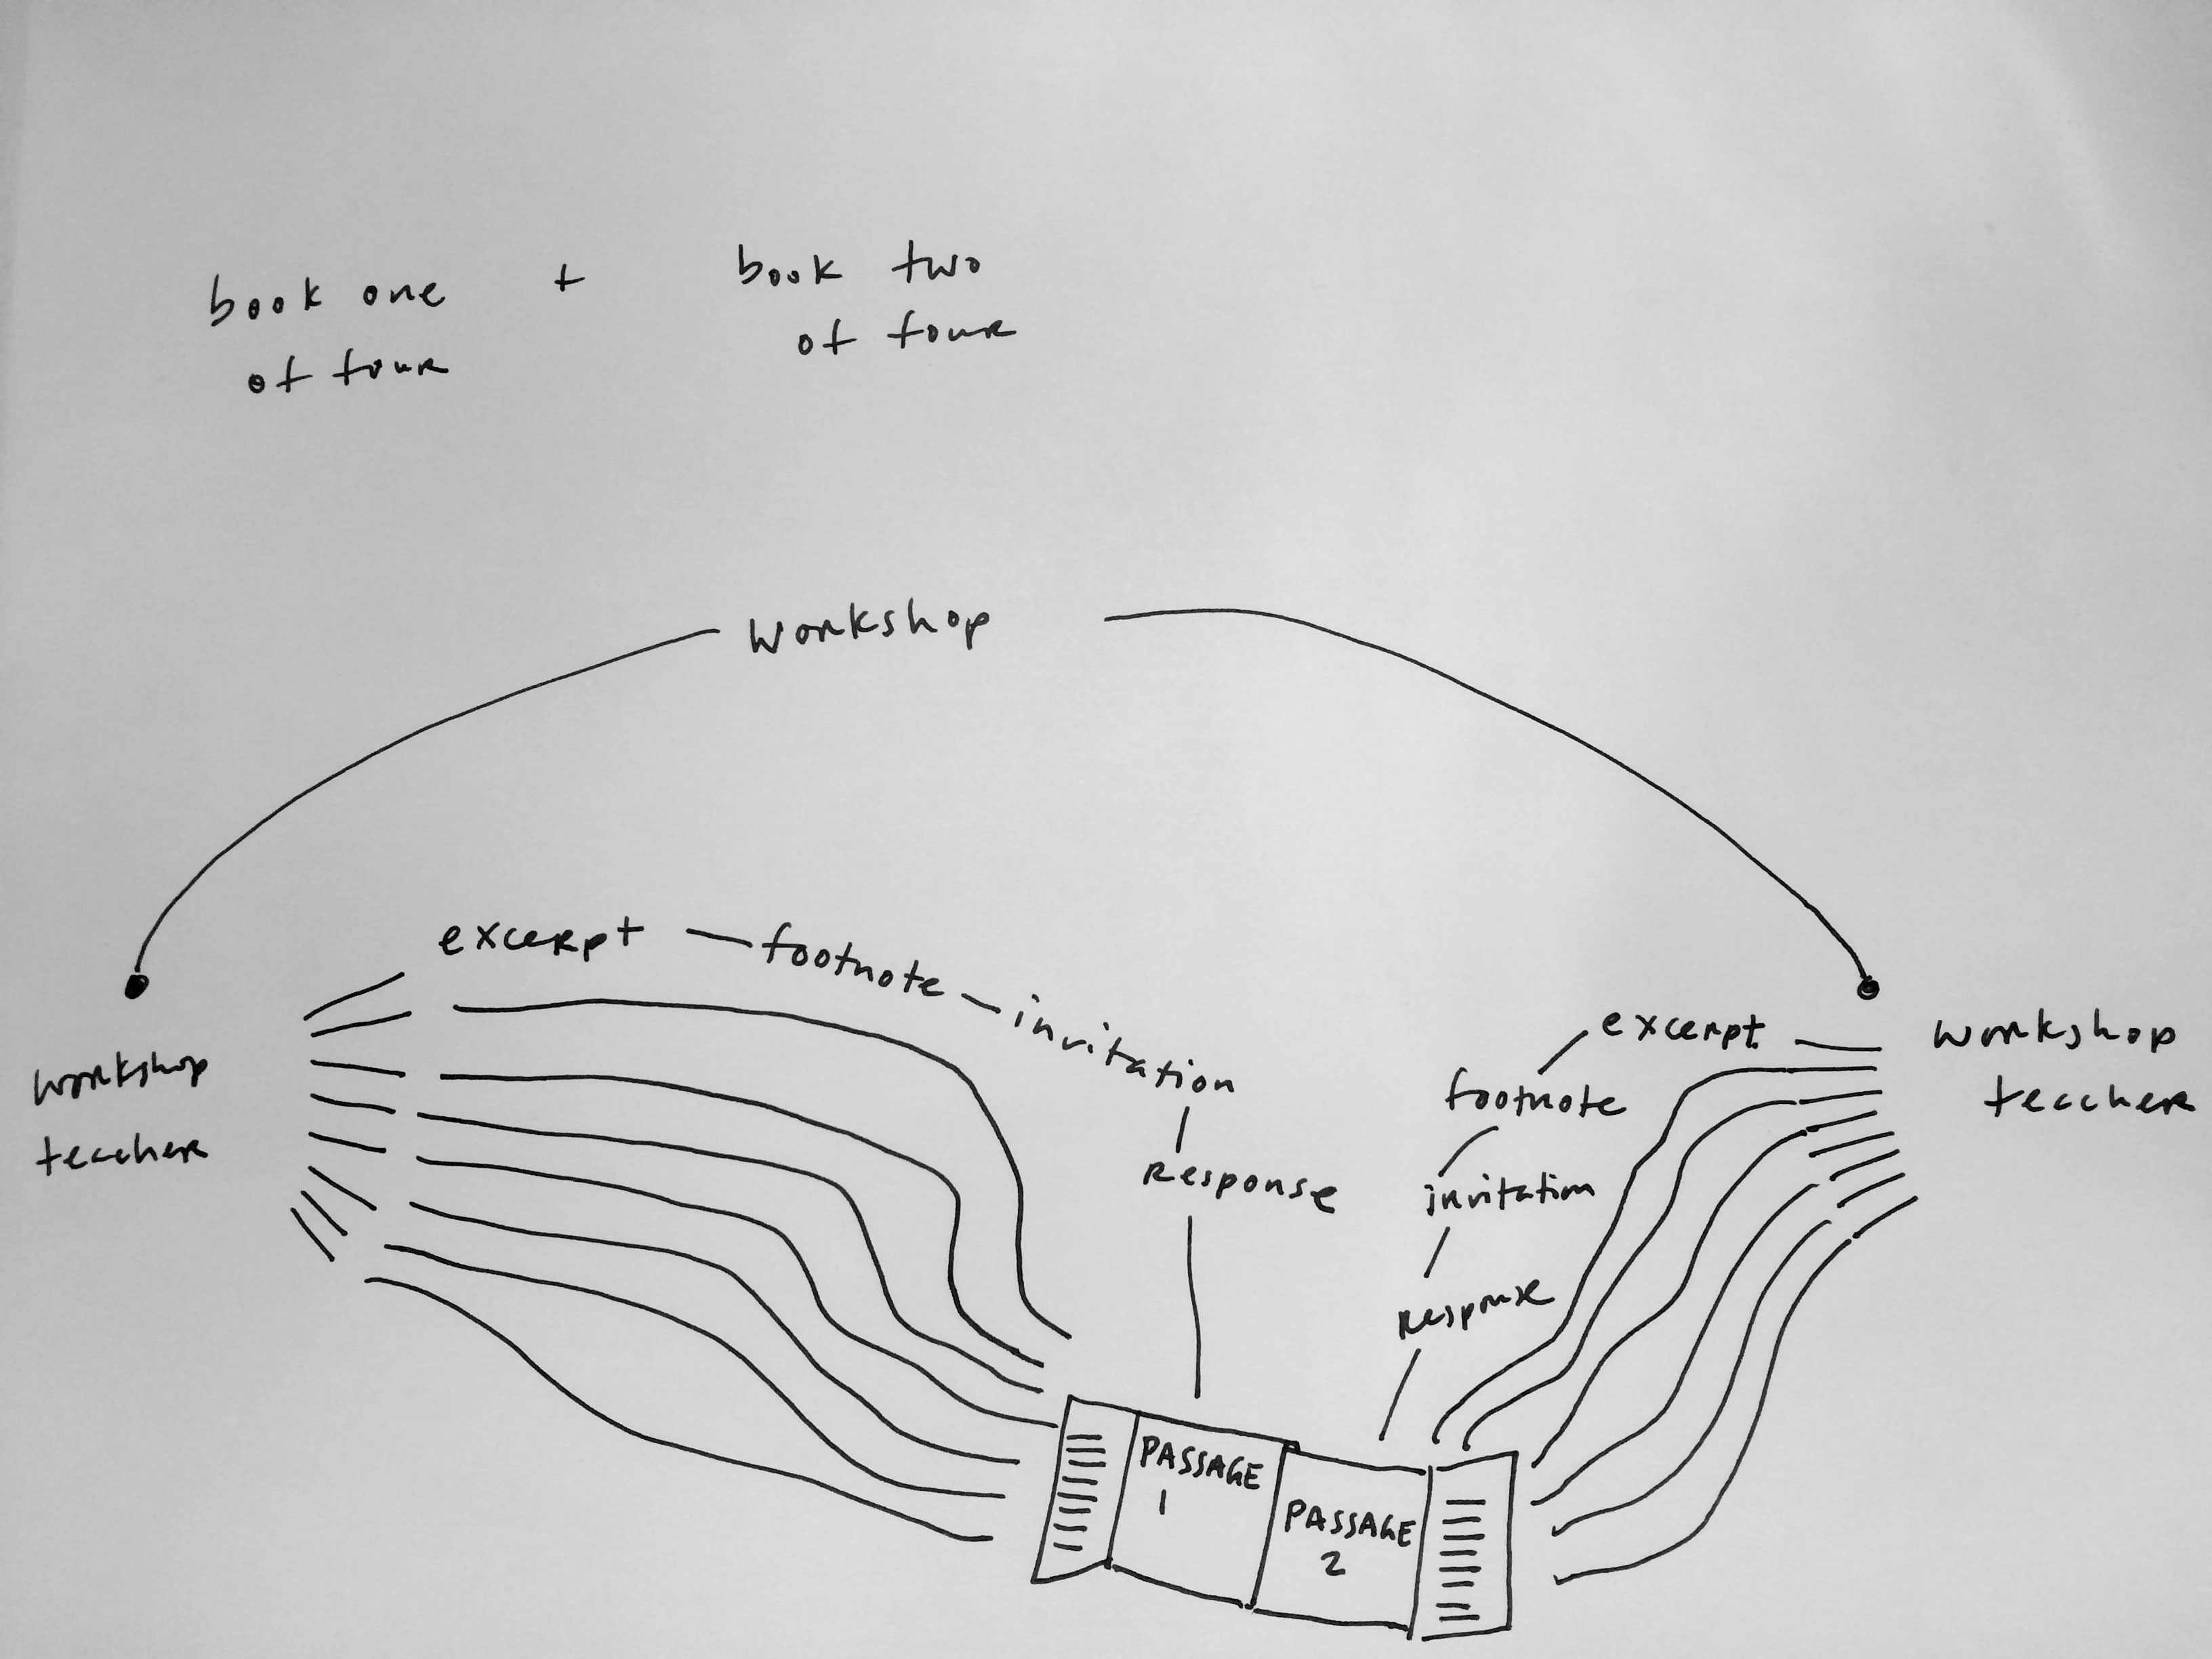 book one + book two
of four of four
workshop
excerpt — footnote — invitation
Response
excerpt
footnote
invitation
Response
workshop
teacher
workshop
teacher
PASSAGE
1
PASSAGE
2